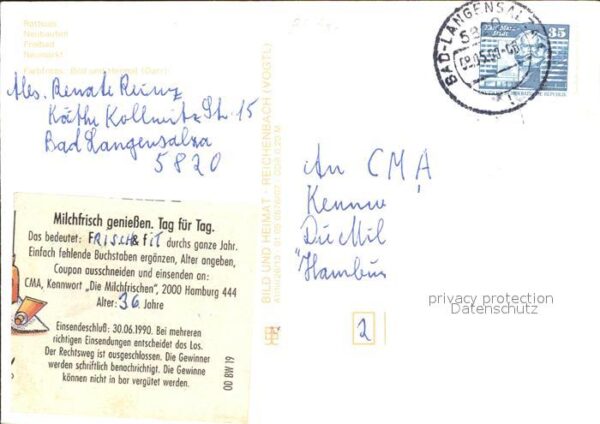 Rathaus
Neubauten
Freibad
Neumarkt
Abs. Renate
Käthe Kollwitz Str. 15
Bad Langensalza
5820
BILD UND HEIMAT · REICHENBACH (VOGTL)
BAD-LANGENSALZA
35
An CMA
Kennw
Hambur
2
Milchfrisch genießen. Tag für Tag.
Das bedeutet: FRISCH & fiT durchs ganze Jahr.
Einfach fehlende Buchstaben ergänzen, Alter angeben,
Coupon ausschneiden und einsenden an:
CMA, Kennwort „Die Milchfrischen“, 2000 Hamburg 444
Alter: 36 Jahre
Einsendeschluß: 30.06.1990. Bei mehreren
richtigen Einsendungen entscheidet das Los.
Der Rechtsweg ist ausgeschlossen. Die Gewinner
werden schriftlich benachrichtigt. Die Gewinne
können nicht in bar vergütet werden.
OD BW 19
privacy protection
Datenschutz